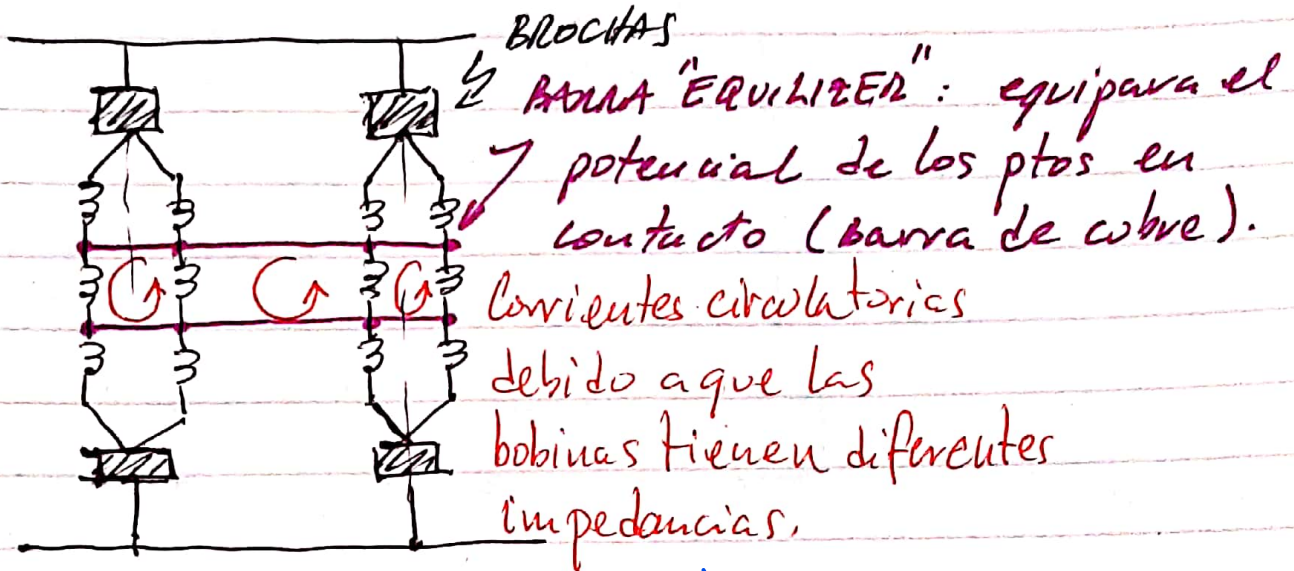 BROCHAS
BARRA "EQUILIZER": equipara el
potencial de los ptos en
contacto (barra de cobre).
Corrientes circulatorias
debido a que las
bobinas tienen diferentes
impedancias.